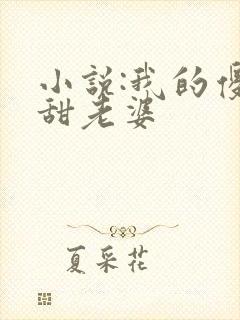 小说:我的傻
甜老婆
夏采花